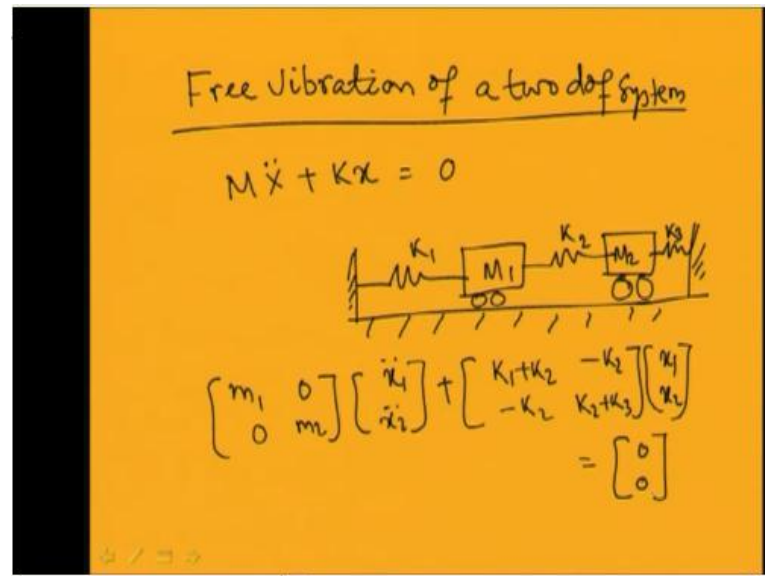 Free Vibration of a two dof System
MẌ + Kx = 0
K₁ M₁ K₂ M₂ K₃
[m₁ 0] [ẍ₁] + [K₁+K₂ -K₂] [x₁]
[0 m₂] [ẍ₂] [-K₂ K₂+K₃] [x₂]
= [0]
[0]